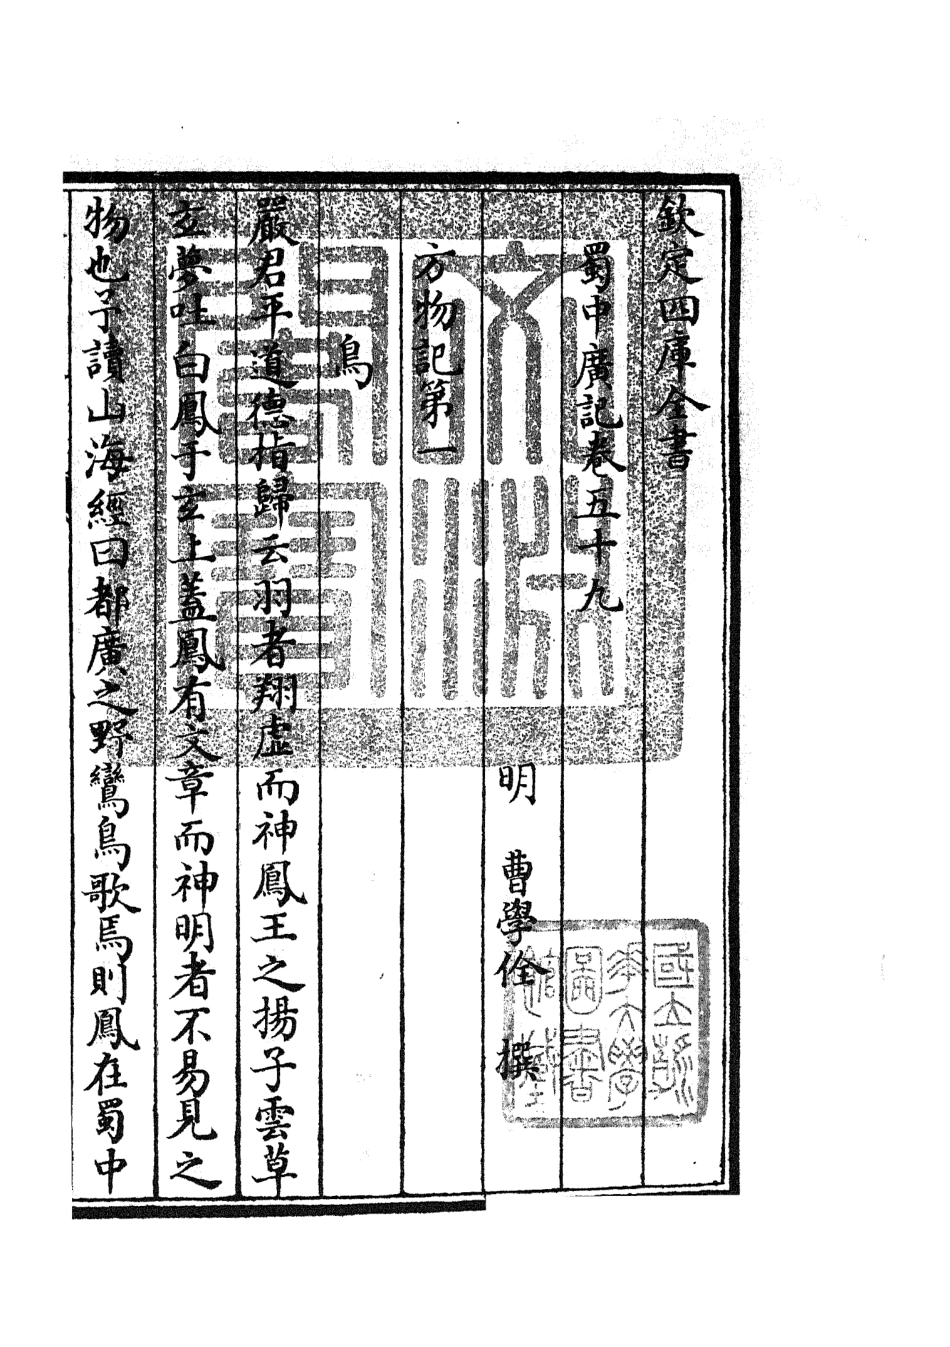 欽定四庫全書
蜀中廣記卷五十九
明　曹學佺　撰
方物記第一
鳥
嚴君平道德指歸云羽者翔虛而神鳳王之揚子雲草
玄夢吐白鳳于玄上蓋鳳有文章而神明者不易見之
物也予讀山海經曰都廣之野鸞鳥歌焉則鳳在蜀中
文淵閣寶